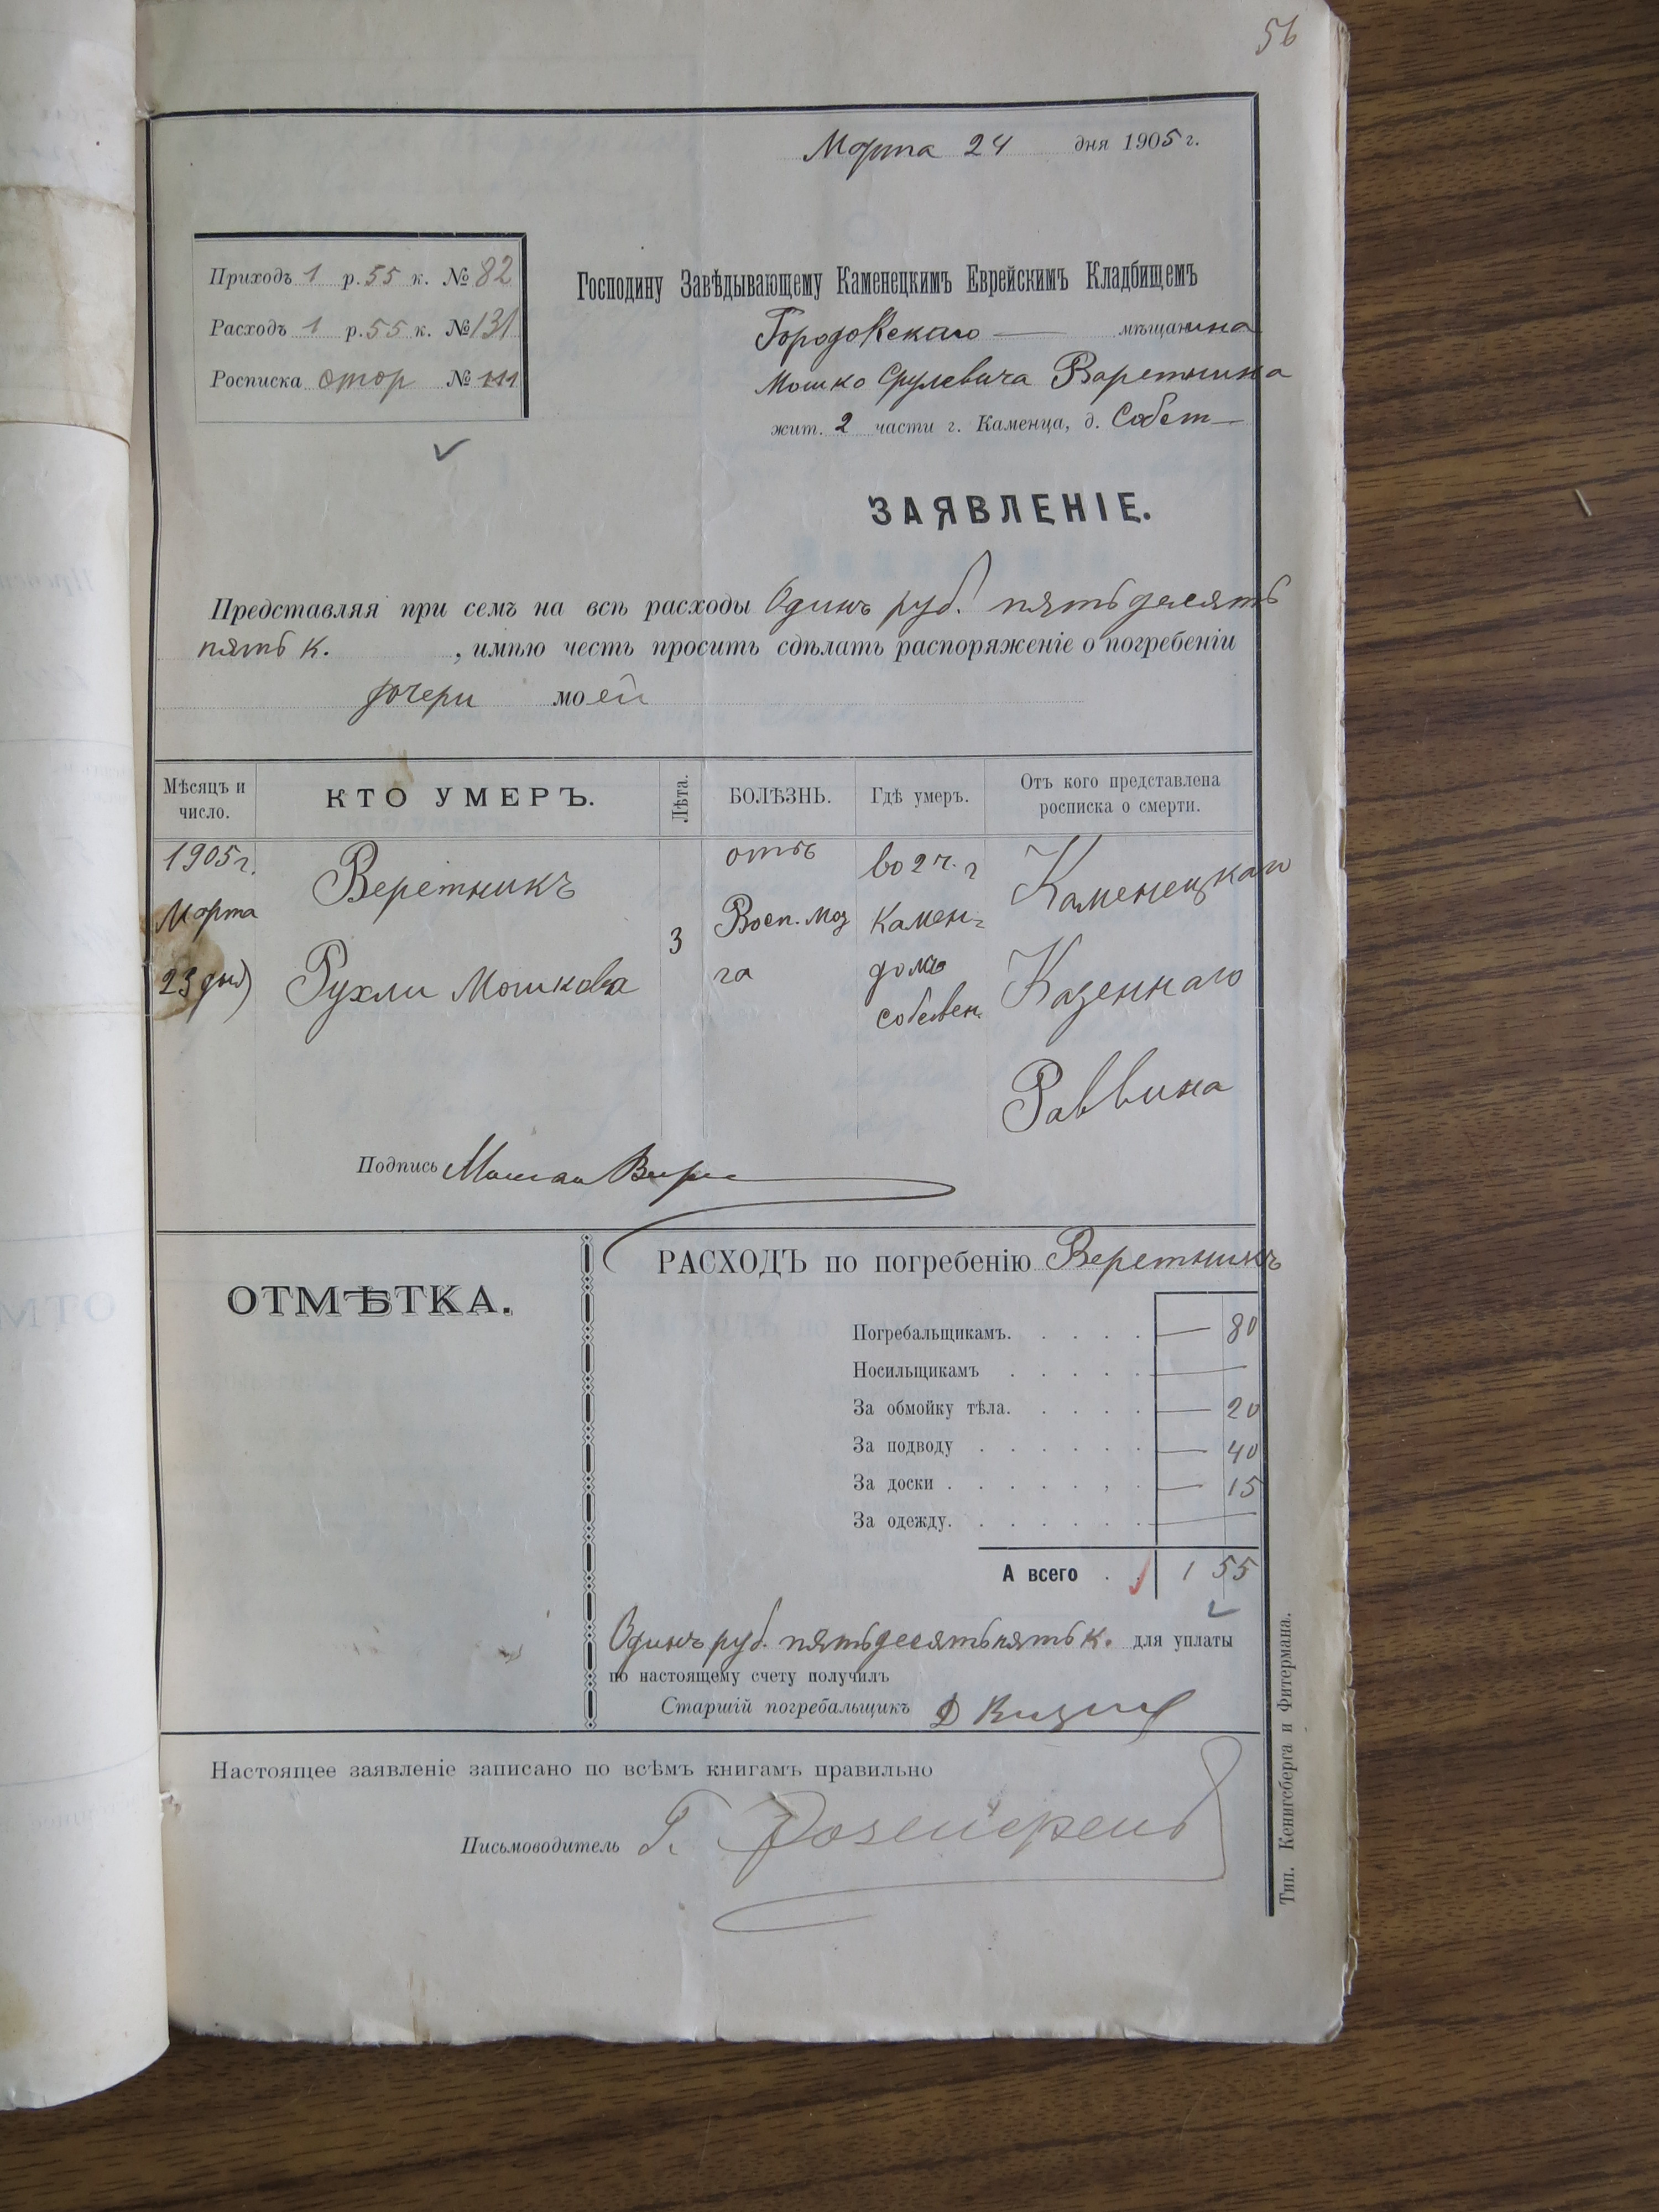 56
Марта 24 дня 1905 г.
Приходъ 1 р. 55 к. № 82
Расходъ 1 р. 55 к. № 131
Росписка отор № 111
Господину Завѣдывающему Каменецкимъ Еврейскимъ Кладбищемъ
Городокскаго мѣщанина
Мошко Срулевича Варетника
жит. 2 части г. Каменца, д. Собст
ЗАЯВЛЕНІЕ.
Представляя при семъ на всѣ расходы Одинъ руб. пятьдесятъ
пять к. , имѣю честь просить сдѣлать распоряженіе о погребеніи
дочери моей
Мѣсяцъ и число.
КТО УМЕРЪ.
Лѣта.
БОЛѢЗНЬ.
Гдѣ умеръ.
Отъ кого представлена росписка о смерти.
1905 г.
Марта
23 дня
Веретникъ
Рухли Мошкова
3
отъ
Восп. моз
га
во 2 ч. г
Камен=
дома
собствен.
Каменецкаго
Казеннаго
Раввина
Подпись
РАСХОДЪ по погребенію Веретникъ
ОТМѢТКА.
Погребальщикамъ. — 80
Носильщикамъ —
За обмойку тѣла. — 20
За подводу — 40
За доски — 15
За одежду. —
А всего 1 55
Одинъ руб. пятьдесятъпять к. для уплаты
по настоящему счету получилъ
Старшій погребальщикъ
Настоящее заявленіе записано по всѣмъ книгамъ правильно
Письмоводитель Г.
Тип. Кенигсберга и Фитермана.